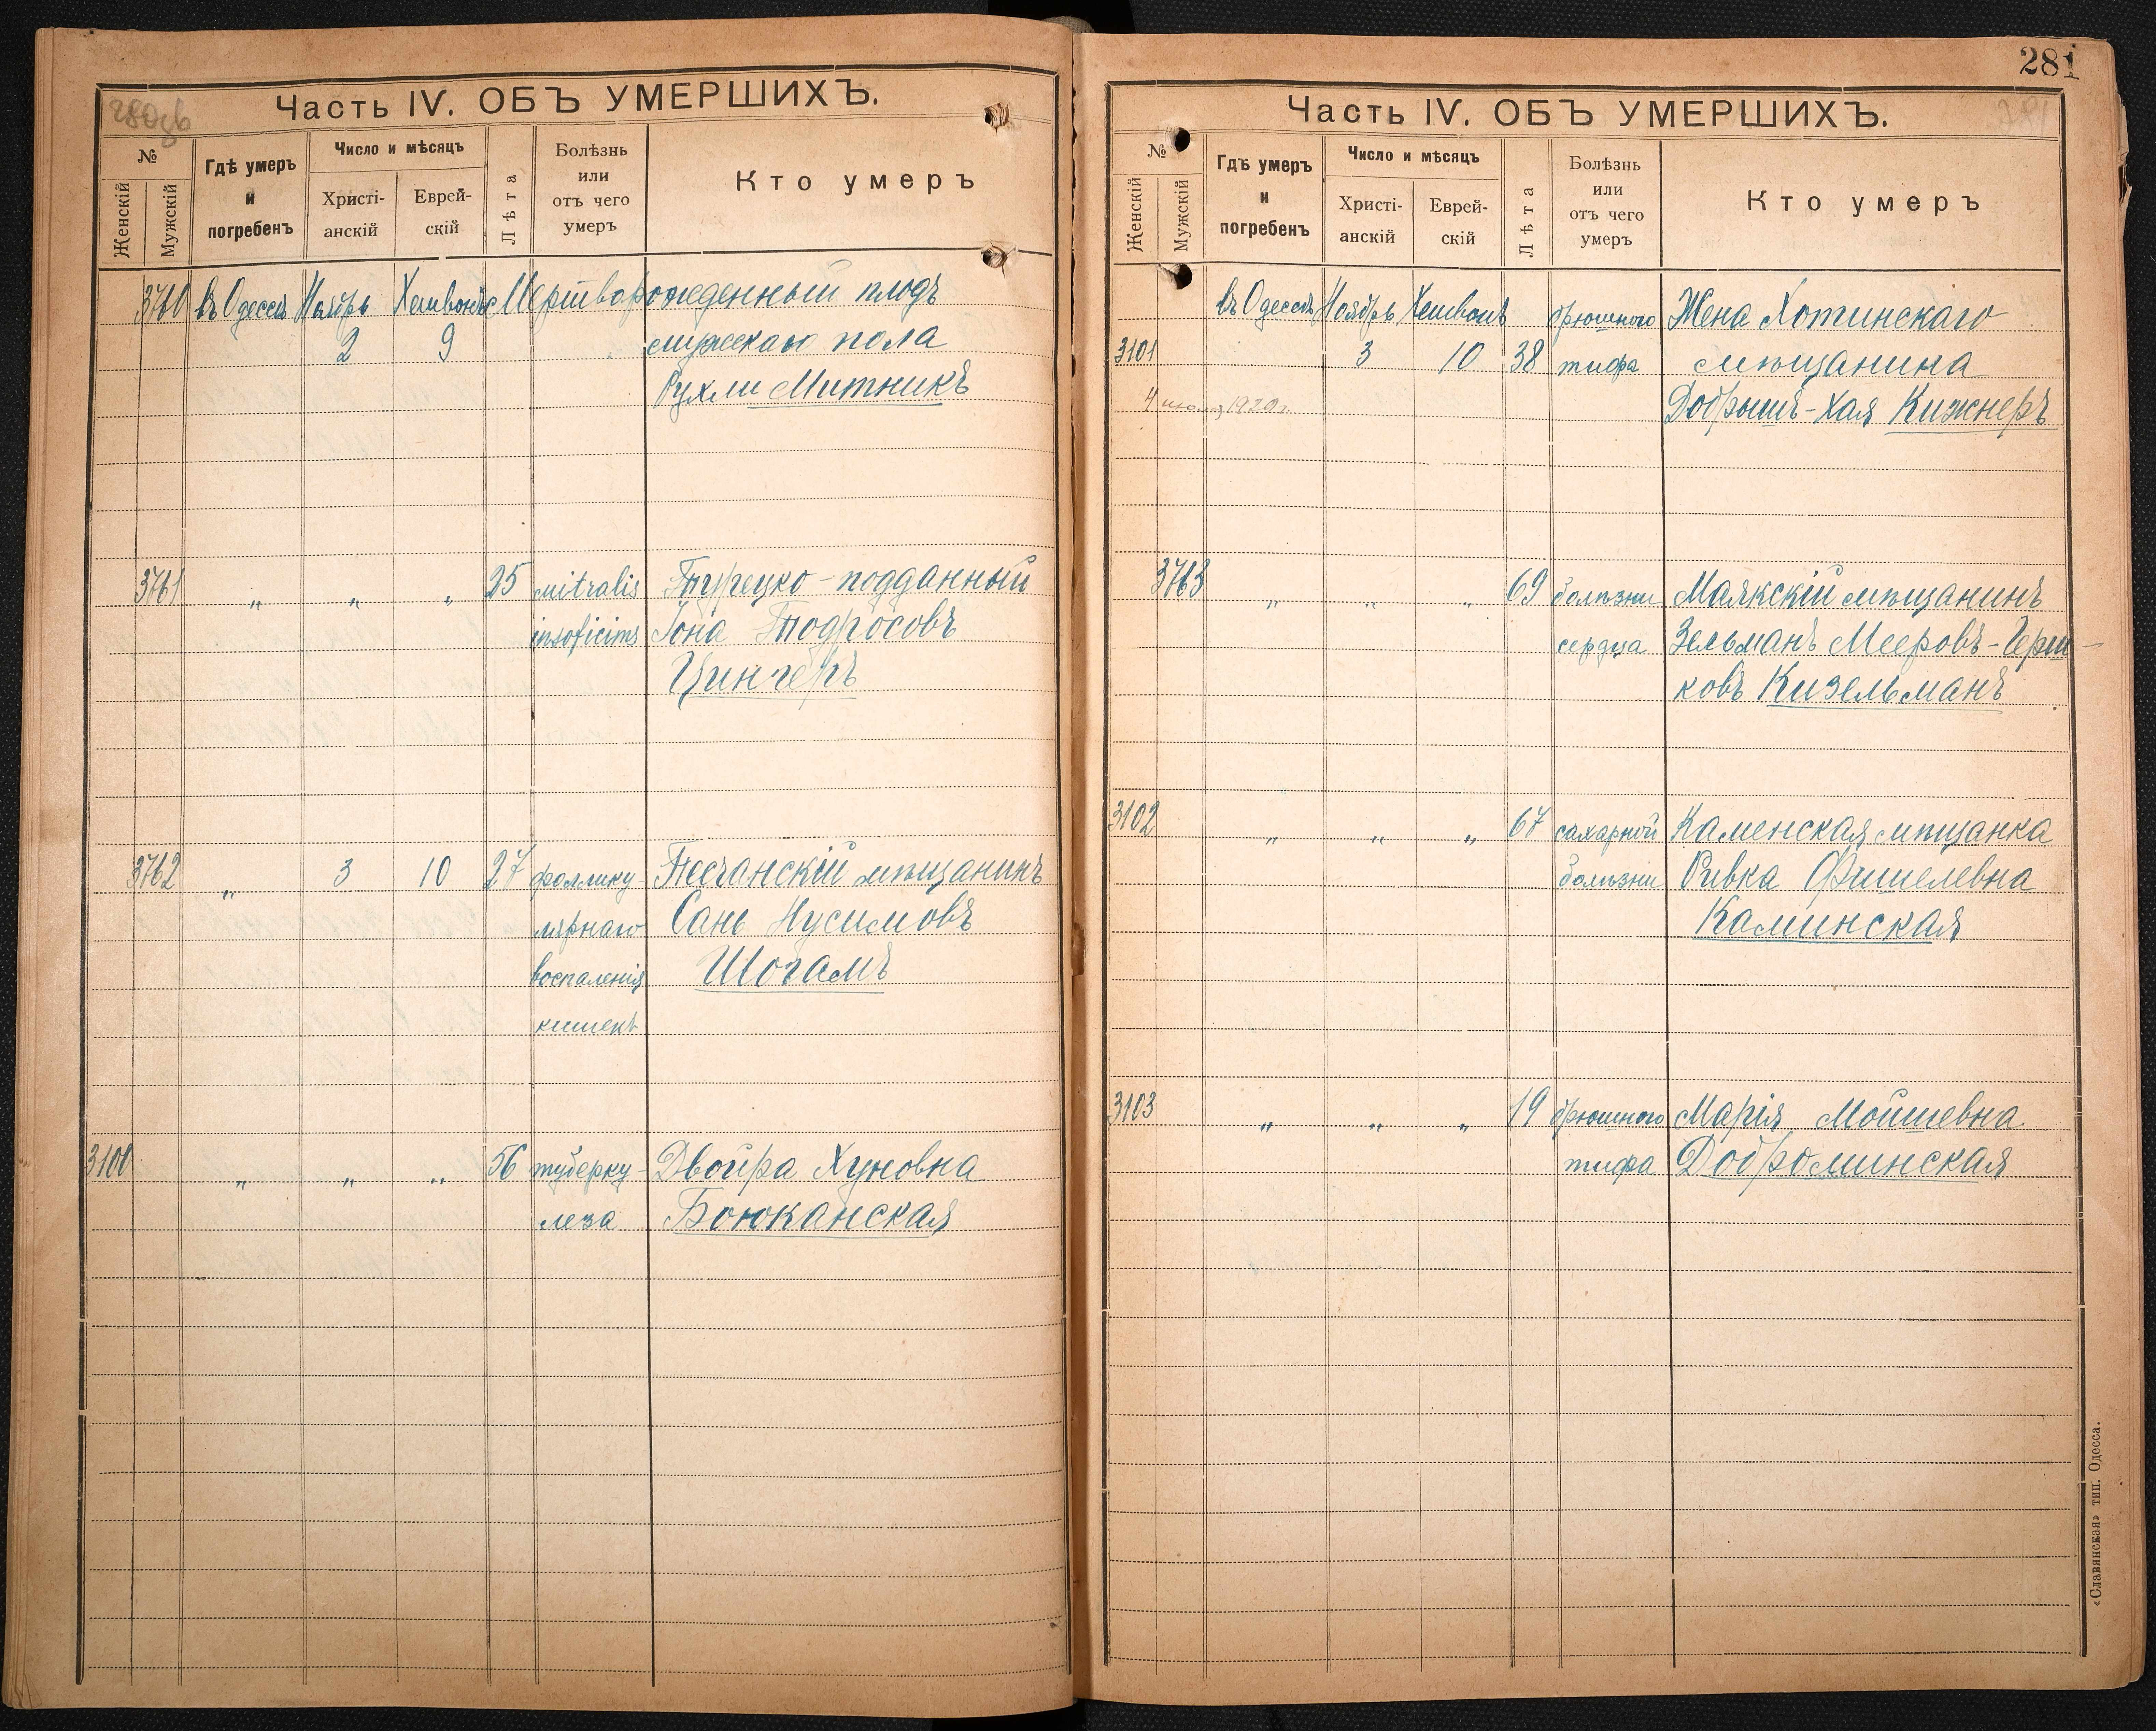 Часть IV. ОБЪ УМЕРШИХЪ.
№
Женскій
Мужскій
Гдѣ умеръ
и
погребенъ
Число и мѣсяцъ
Христі-
анскій
Еврей-
скій
Лѣта
Болѣзнь
или
отъ чего
умеръ
Кто умеръ
3760 въ Одессѣ Ноябрь Хешвонъ Мертворожденный плодъ
2 9 мужскаго пола
Рухли Митникъ
3761 „ „ „ 25 mitralis Турецко-подданный
Іона Тодросовъ
Цингеръ
3762 „ 3 10 27 фоллику- Песчанскій мѣщанинъ
лярнаго Сань Нусимовъ
воспаленія Шогамъ
кишекъ
3100 „ „ „ 56 туберку- Двойра Хуновна
леза Боюканская
281
Часть IV. ОБЪ УМЕРШИХЪ.
№
Женскій
Мужскій
Гдѣ умеръ
и
погребенъ
Число и мѣсяцъ
Христі-
анскій
Еврей-
скій
Лѣта
Болѣзнь
или
отъ чего
умеръ
Кто умеръ
въ Одессѣ Ноябрь Хешвонъ брюшного Жена Хотинскаго
3101 3 10 38 тифа мѣщанина
4 1920г. Добрышъ-Хая Кижнеръ
3763 „ „ „ 69 болѣзни Маякскій мѣщанинъ
сердца Зельманъ Мееровъ-Герш-
ковъ Кизельманъ
3102 „ „ „ 67 сахарной Каменская мѣщанка
болѣзни Ривка Фишелевна
Каминская
3103 „ „ „ 19 брюшного Марія Мойшевна
тифа Доброминская
«Славянская» тип. Одесса.